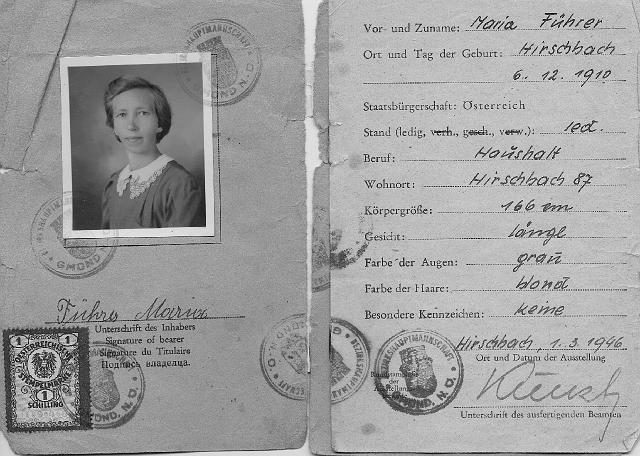 Führer Maria
Unterschrift des Inhabers
Signature of bearer
Signature du Titulaire
Подпись владельца.
1 1
ÖSTERREICHISCHE
STEMPELMARKE
1
SCHILLING
GMÜND
GMÜND, N.Ö.
Vor- und Zuname: Maria Führer
Ort und Tag der Geburt: Hirschbach
6. 12. 1910
Staatsbürgerschaft: Österreich
Stand (ledig, verh., gesch., verw.): led.
Beruf: Haushalt
Wohnort: Hirschbach 87
Körpergröße: 166 cm
Gesicht: längl
Farbe der Augen: grau
Farbe der Haare: blond
Besondere Kennzeichen: keine
Hirschbach, 1. 3. 1946
Ort und Datum der Ausstellung
Unterschrift des ausfertigenden Beamten